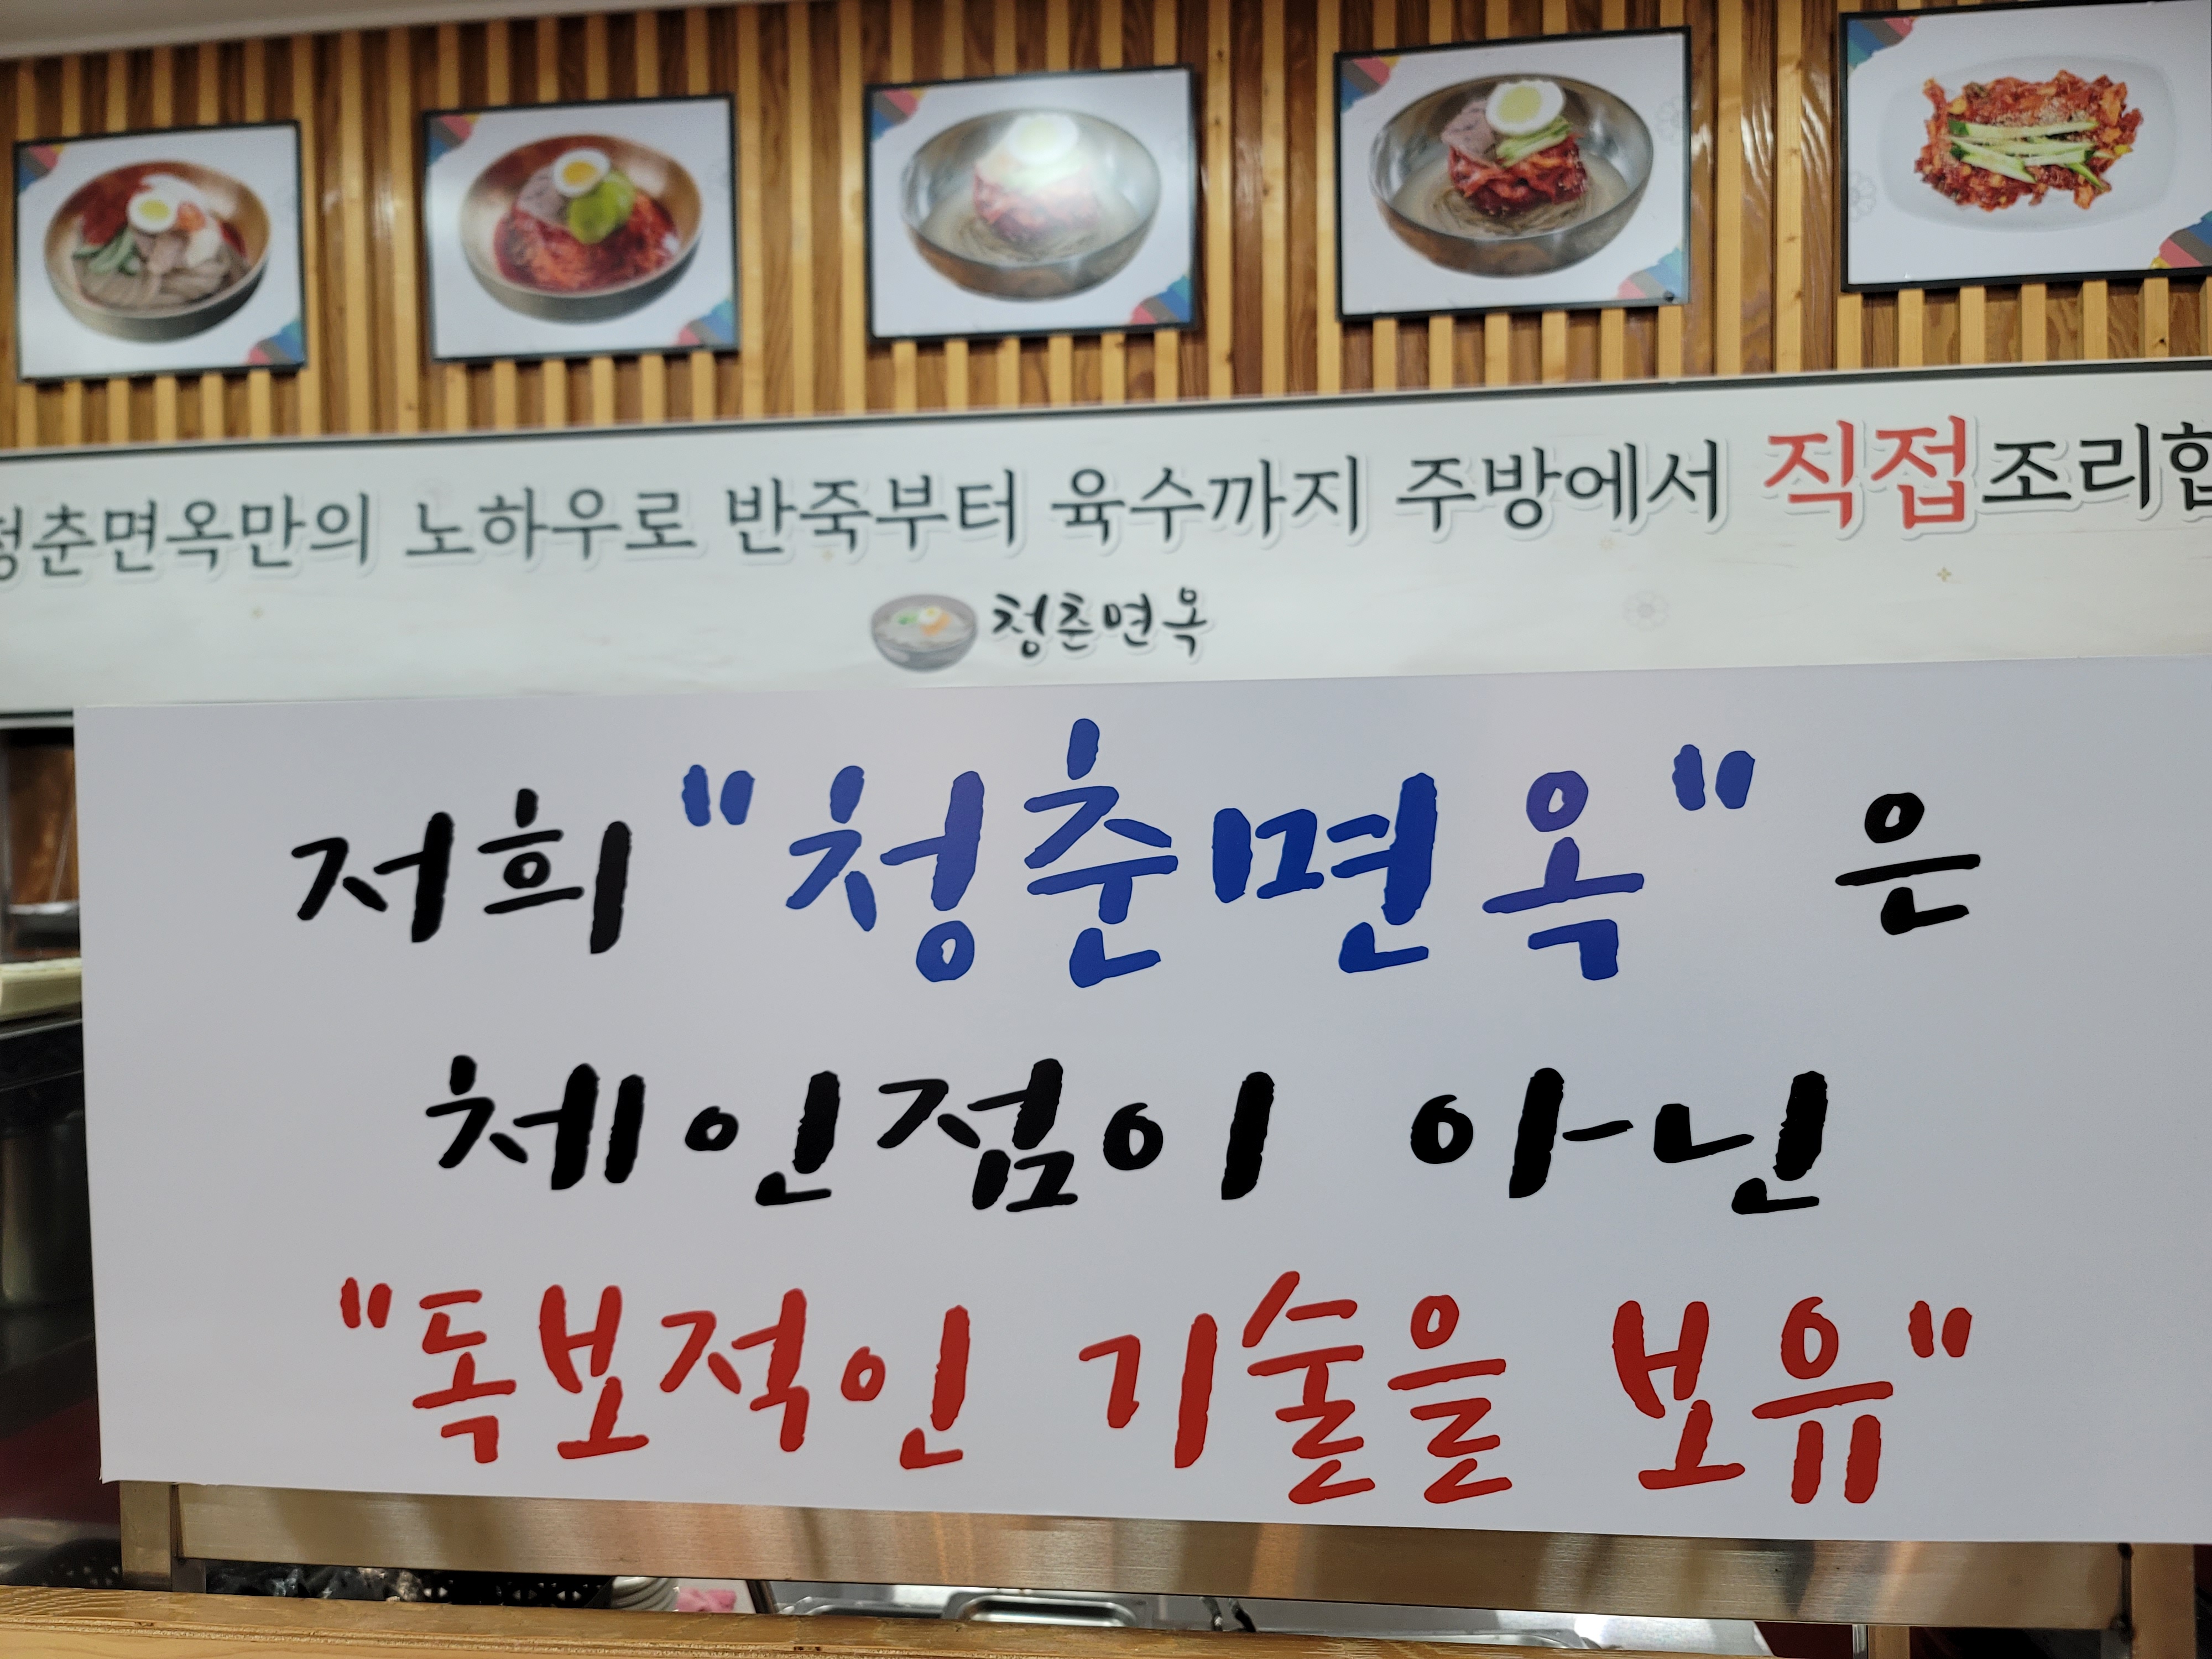 청춘면옥만의 노하우로 반죽부터 육수까지 주방에서 직접조리합
청춘면옥
저희 "청춘면옥" 은
체인점이 아닌
"독보적인 기술을 보유"